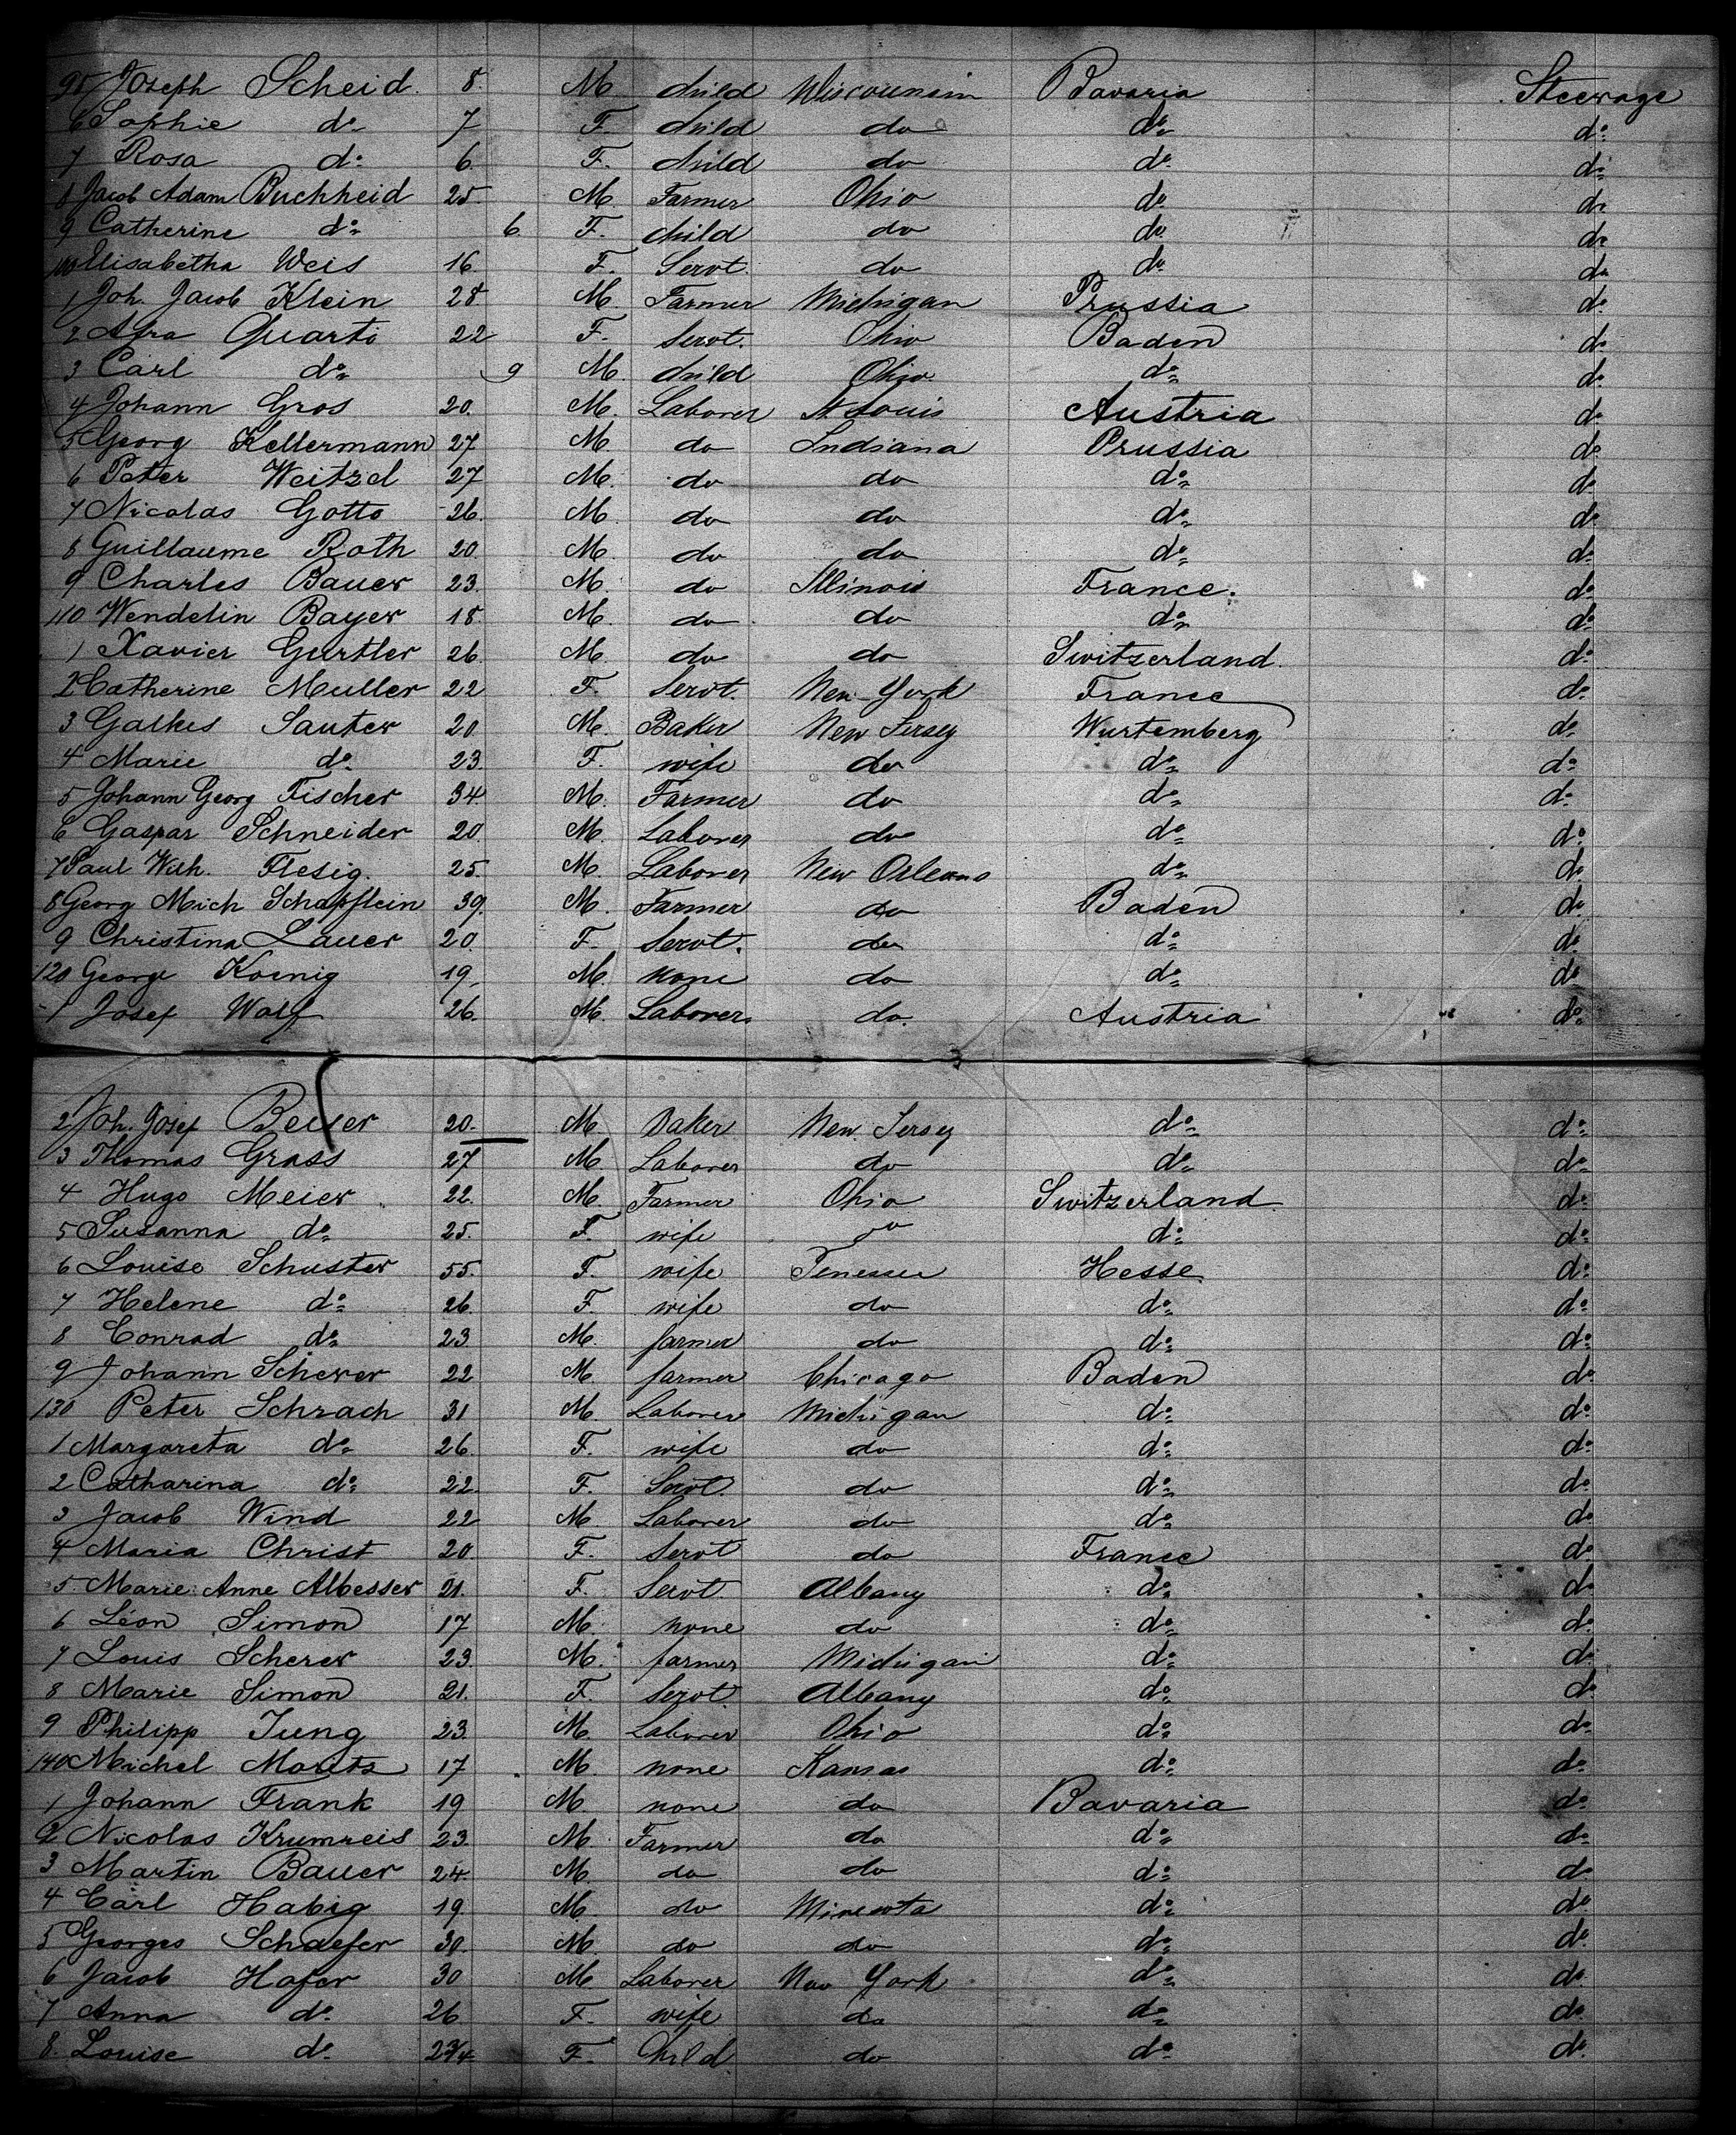 95 Joseph Scheid. 8. M. child Wisconsin Bavaria Steerage
6 Sophie do 7 F. child do do do
7 Rosa do 6. F. child do do do
8 Jacob Adam Buchheid 25. M. Farmer Ohio do do
9 Catherine do 6. F. child do do do
100 Elisabetha Weis 16. F. Servt. do do do
1 Joh. Jacob Klein 28 M. Farmer Michigan Prussia do
2 Afra Quarti 22 F. Servt. Ohio Baden do
3 Carl do 9 M. child Ohio. do do
4 Johann Gros 20. M. Laborer St. Louis Austria do
5 Georg Kellermann 27 M. do Indiana Prussia do
6 Peter Weitzel 27 M. do do do do
7 Nicolas Gotto 26. M. do do do do
8 Guillaume Roth 20. M. do do do do
9 Charles Bauer 23. M. do Illinois France. do
110 Wendelin Bayer 18. M. do do do do
1 Xavier Gurtler 26. M. do do Switzerland. do
2 Catherine Muller 22 F. Servt. New-York France do
3 Sauter 20. M. Baker New Jersey Wurtemberg do
4 Marie do 23. F. wife do do do
5 Johann Georg Fischer 34. M. Farmer do do do
6 Gaspar Schneider 20. M. Laborer do do do
7 Paul Wilh. Flesig. 25. M. Laborer New Orleans do do
8 Georg Mich Schapflein 39. M. Farmer do Baden do
9 Christina Lauer 20. F. Servt. do do do
120 George Koenig 19. M. none do do do
1 Josef Wolf 26. M. Laborer do. Austria do
2 Joh. Josef Beiser 20. M. Baker New. Jersey do do
3 Thomas Grass 27 M. Laborer do do do
4 Hugo Meier. 22. M. Farmer Ohio Switzerland. do
5 Susanna do 25. F. wife do do do
6 Louise Schuster 55. F. wife Tenessee Hesse. do
7 Helene do 26. F. wife do do do
8 Conrad do 23. M. farmer do do do
9 Johann Scherer 22 M. farmer Chicago Baden do
130 Peter Schrach 31 M. Laborer Michigan do do
1 Margareta do 26. F. wife do do do
2 Catharina do 22. F. Servt. do do do
3 Jacob Wind 22 M. Laborer do do do
4 Maria Christ 20. F. Servt do France do
5 Marie Anne Albesser 21. F. Servt. Albany do do
6 Léon Simon 17 M. none do do do
7 Louis Scherer 23. M. farmer Michigan do do
8 Marie Simon 21. F. Servt. Albany do do
9 Philipp Jung 23. M. Laborer Ohio do do
140 Michel Moritz 17 M. none Kansas do do
1 Johann Frank 19 M. none do Bavaria do
2 Nicolas Krumreis 23. M. Farmer do do do
3 Martin Bauer 24. M. do do do do
4 Carl Habig 19. M. do Minesota do do
5 Georges Schaefer 30. M. do do do do
6 Jacob Hafer 30 M. Laborer New York do do
7 Anna do 26 F. wife do do do
8. Louise do F. Child do do do